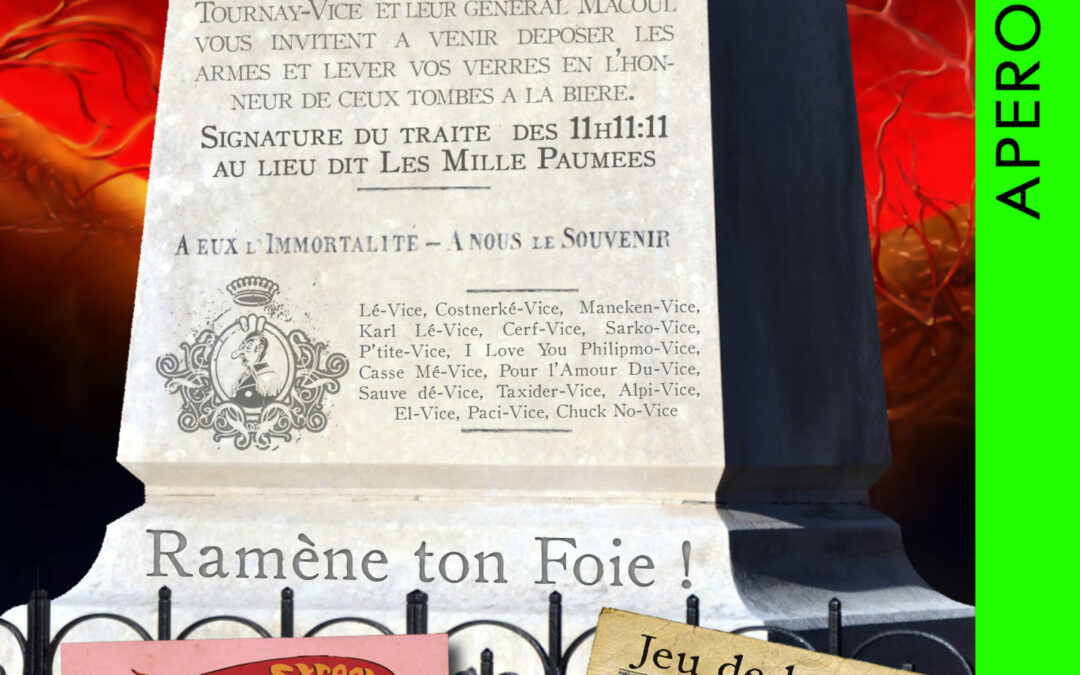 TOURNAY-VICE ET LEUR GENERAL MACOUL
VOUS INVITENT A VENIR DEPOSER LES
ARMES ET LEVER VOS VERRES EN L'HON-
NEUR DE CEUX TOMBES A LA BIERE.
SIGNATURE DU TRAITE DES 11H11:11
AU LIEU DIT LES MILLE PAUMEES
A EUX L'IMMORTALITÉ – A NOUS LE SOUVENIR
Lé-Vice, Costnerké-Vice, Maneken-Vice,
Karl Lé-Vice, Cerf-Vice, Sarko-Vice,
P'tite-Vice, I Love You Philipmo-Vice,
Casse Mé-Vice, Pour l'Amour Du-Vice,
Sauve dé-Vice, Taxider-Vice, Alpi-Vice,
El-Vice, Paci-Vice, Chuck No-Vice
Ramène ton Foie !
Jeu de
APERO